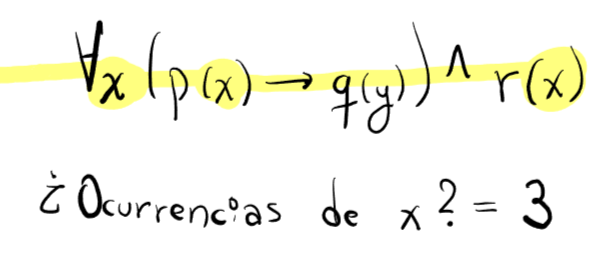 ∀x(p(x)→q(y))∧r(x)
¿Ocurrencias de x?=3